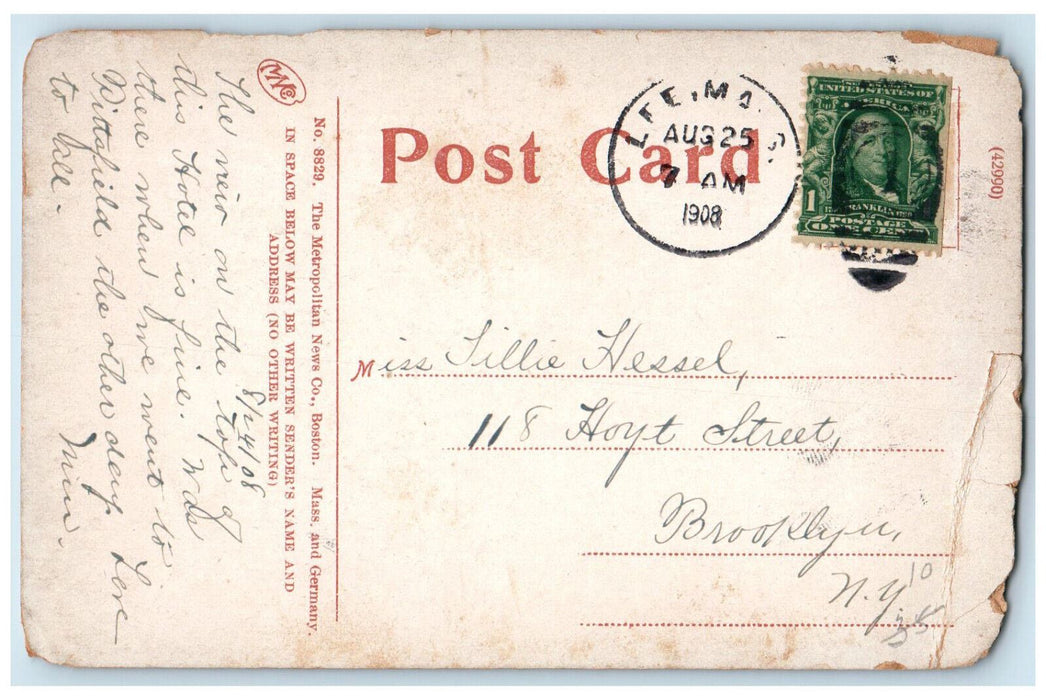 Post Card
LEE, MASS.
AUG 25
7 AM
1908
UNITED STATES OF
AMERICA
1
FRANKLIN
POSTAGE
ONE CENT
(42990)
MNCo
No. 8829. The Metropolitan News Co., Boston. Mass. and Germany.
IN SPACE BELOW MAY BE WRITTEN SENDER'S NAME AND
ADDRESS (NO OTHER WRITING)
8/24/08
The view on the top of
this Hotel is fine. Was
there when we went to
Pittsfield the other day Love
to all. Min.
Miss Tillie Hessel,
118 Hoyt Street,
Brooklyn,
N.Y.
10